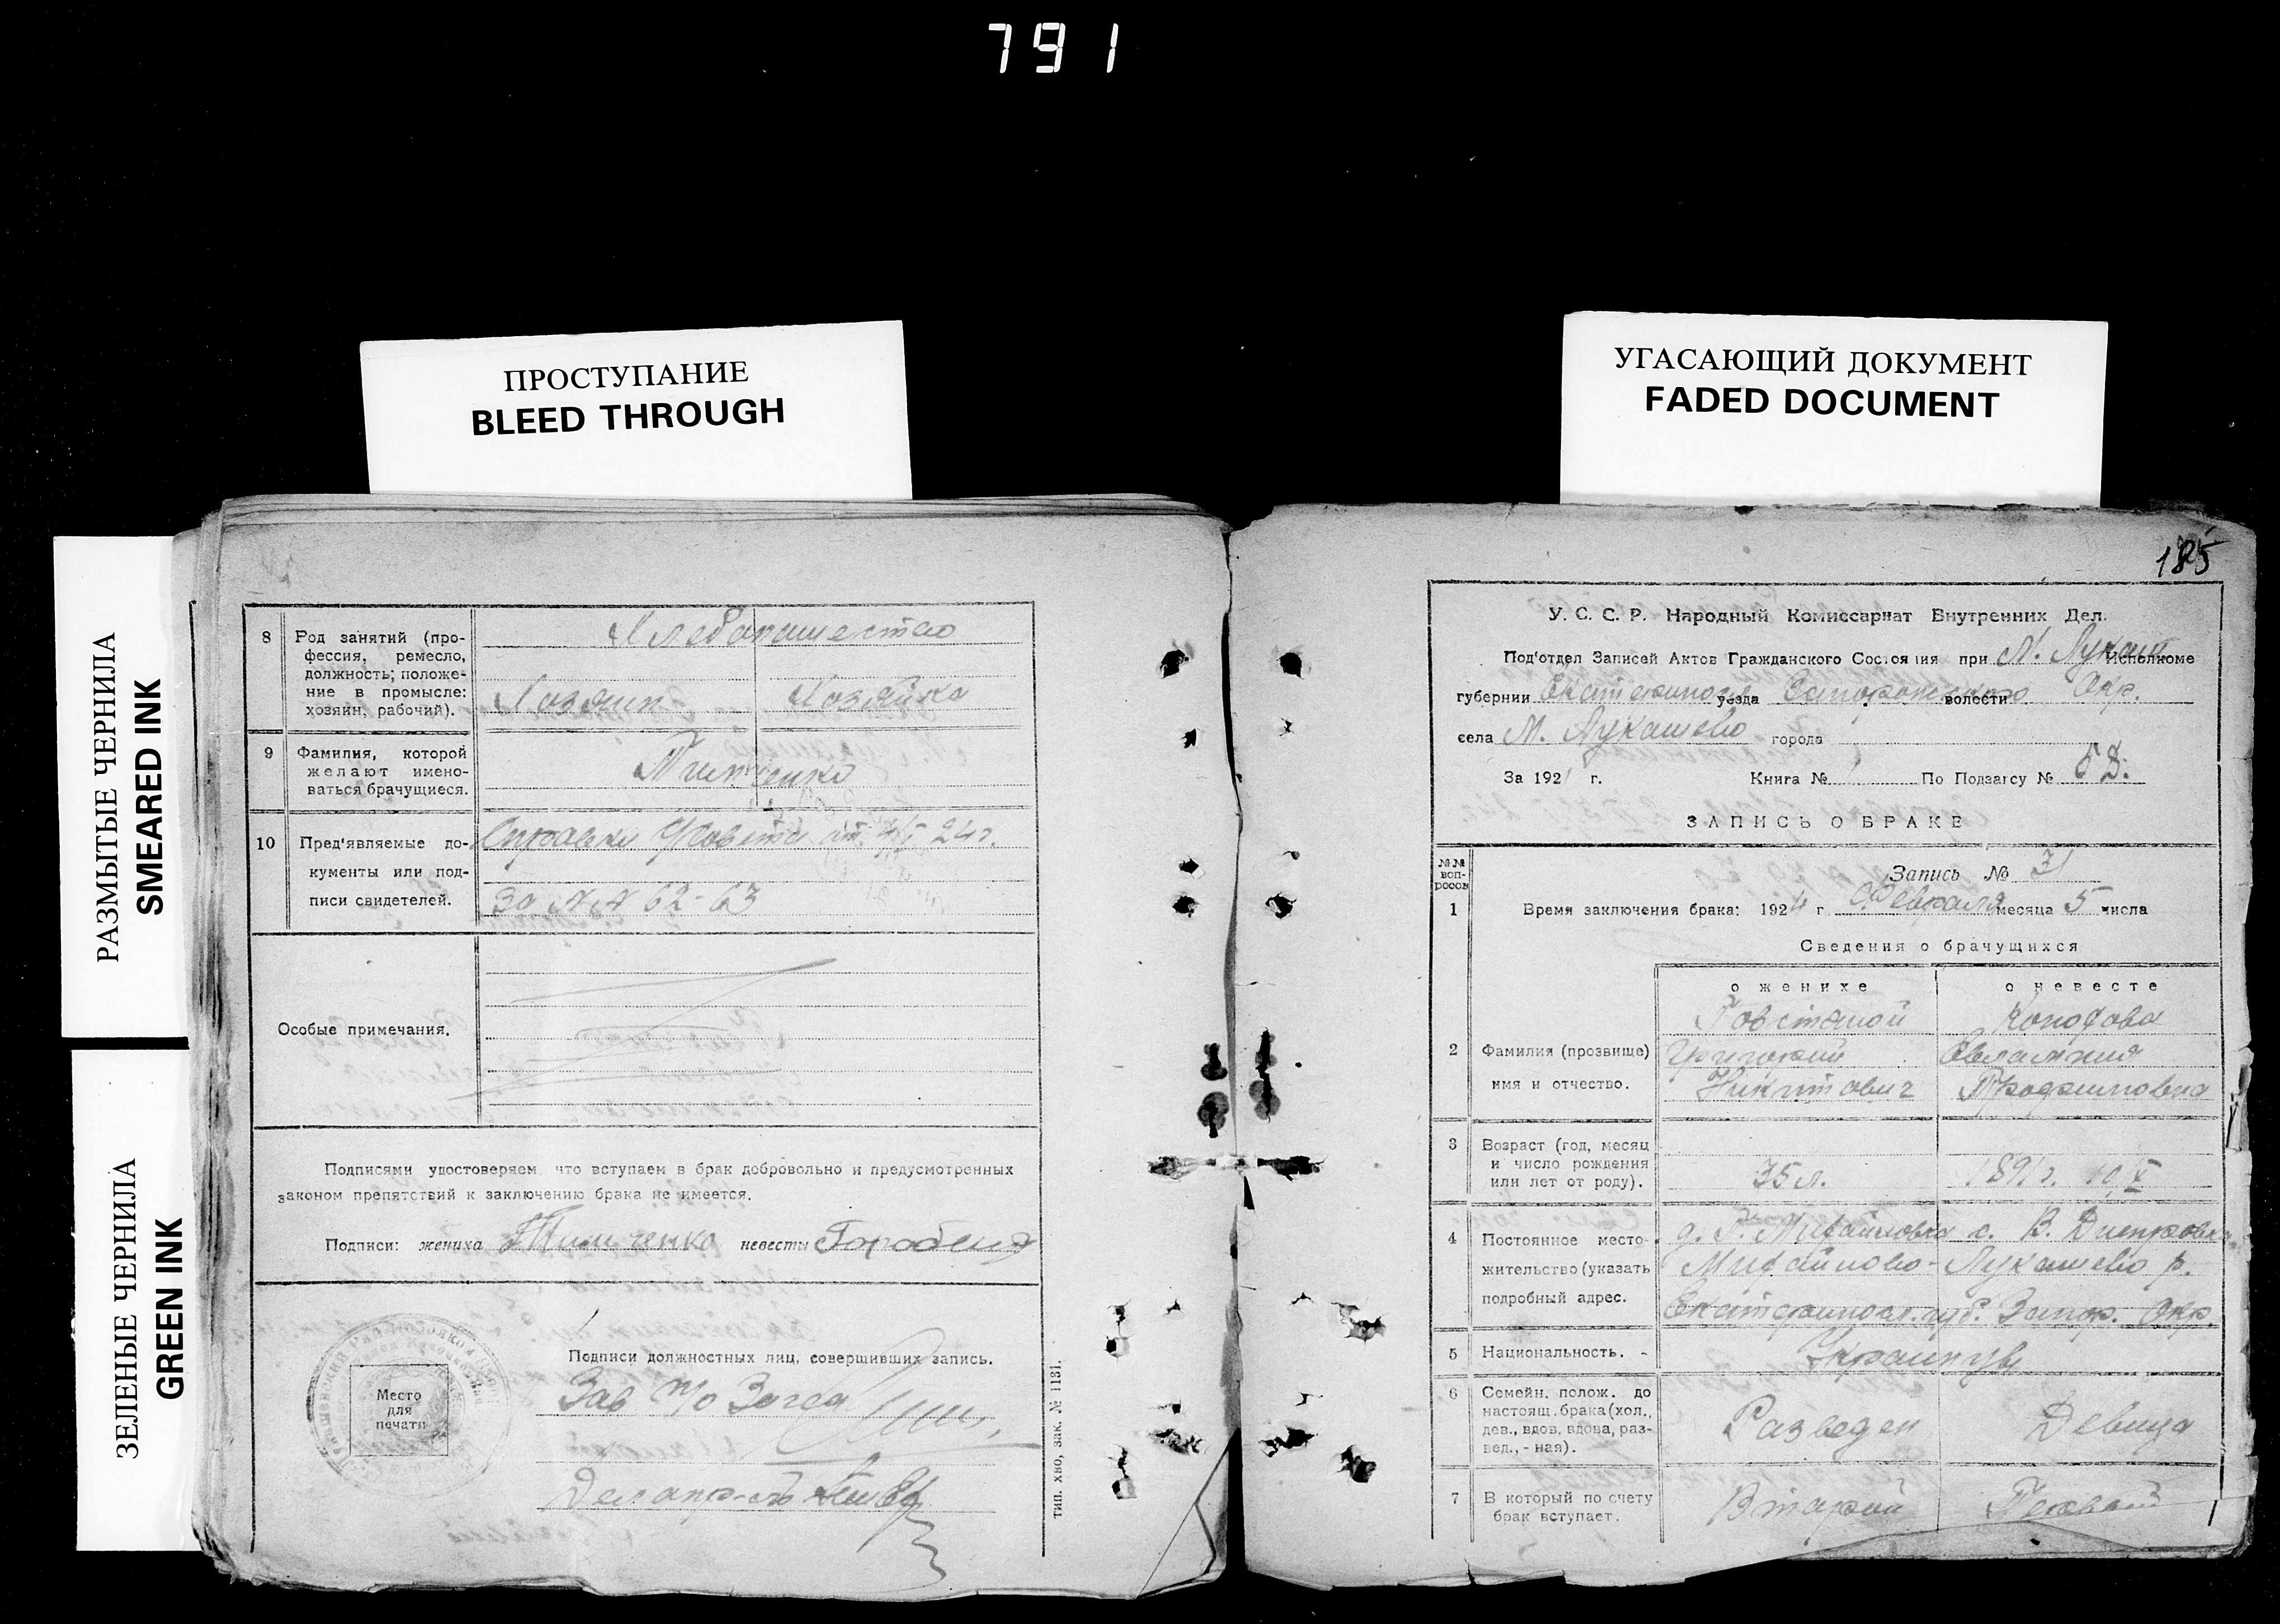 791
ПРОСТУПАНИЕ
BLEED THROUGH
УГАСАЮЩИЙ ДОКУМЕНТ
FADED DOCUMENT
РАЗМЫТЫЕ ЧЕРНИЛА
SMEARED INK
ЗЕЛЕНЫЕ ЧЕРНИЛА
GREEN INK
8 Род занятий (про-
фессия, ремесло,
должность; положе-
ние в промысле:
хозяин, рабочий).
Хлебопашество
Хозяин Хозяйка
9 Фамилия, которой
желают имено-
ваться брачущиеся.
Тимченко
10 Пред'являемые до-
кументы или под-
писи свидетелей.
Справки от 24 г.
за №№ 62-63
Особые примечания.
Подписями удостоверяем, что вступаем в брак добровольно и предусмотренных
законом препятствий к заключению брака не имеется.
Подписи: жениха Тимченко невесты
Подписи должностных лиц, совершивших запись.
Зав п/о Загса
Место
для
печати
тип. хво, зак. № 1131.
185
У. С. С. Р. Народный Комиссариат Внутренних Дел.
Под'отдел Записей Актов Гражданского Состояния при М. Лукаш Исполкоме
губернии Екатеринос уезда Запорожского волости Окр.
села М. Лукашево города
За 192 г. Книга № По Подзагсу №
ЗАПИСЬ О БРАКЕ
№№
воп-
росов
Запись №
1 Время заключения брака: 1924 г. Февраля месяца 5 числа
Сведения о брачущихся
о женихе о невесте
2 Фамилия (прозвище)
имя и отчество.
Товстяной
Григорий Евлампия
Никитович Трофимовна
3 Возраст (год, месяц
и число рождения
или лет от роду).
35 л. 1891 г. 10/V
4 Постоянное место-
жительство (указать
подробный адрес.
Михайловка с. В. Днепровка
Михайлово-Лукашево р.
Екатериносл. губ. Запор. Окр.
5 Национальность. -
Украинцы
6 Семейн. полож. до
настоящ. брака (хол.,
дев., вдов, вдова, раз-
вед., - ная).
Разведен Девица
7 В который по счету
брак вступает.
Вторый Первый